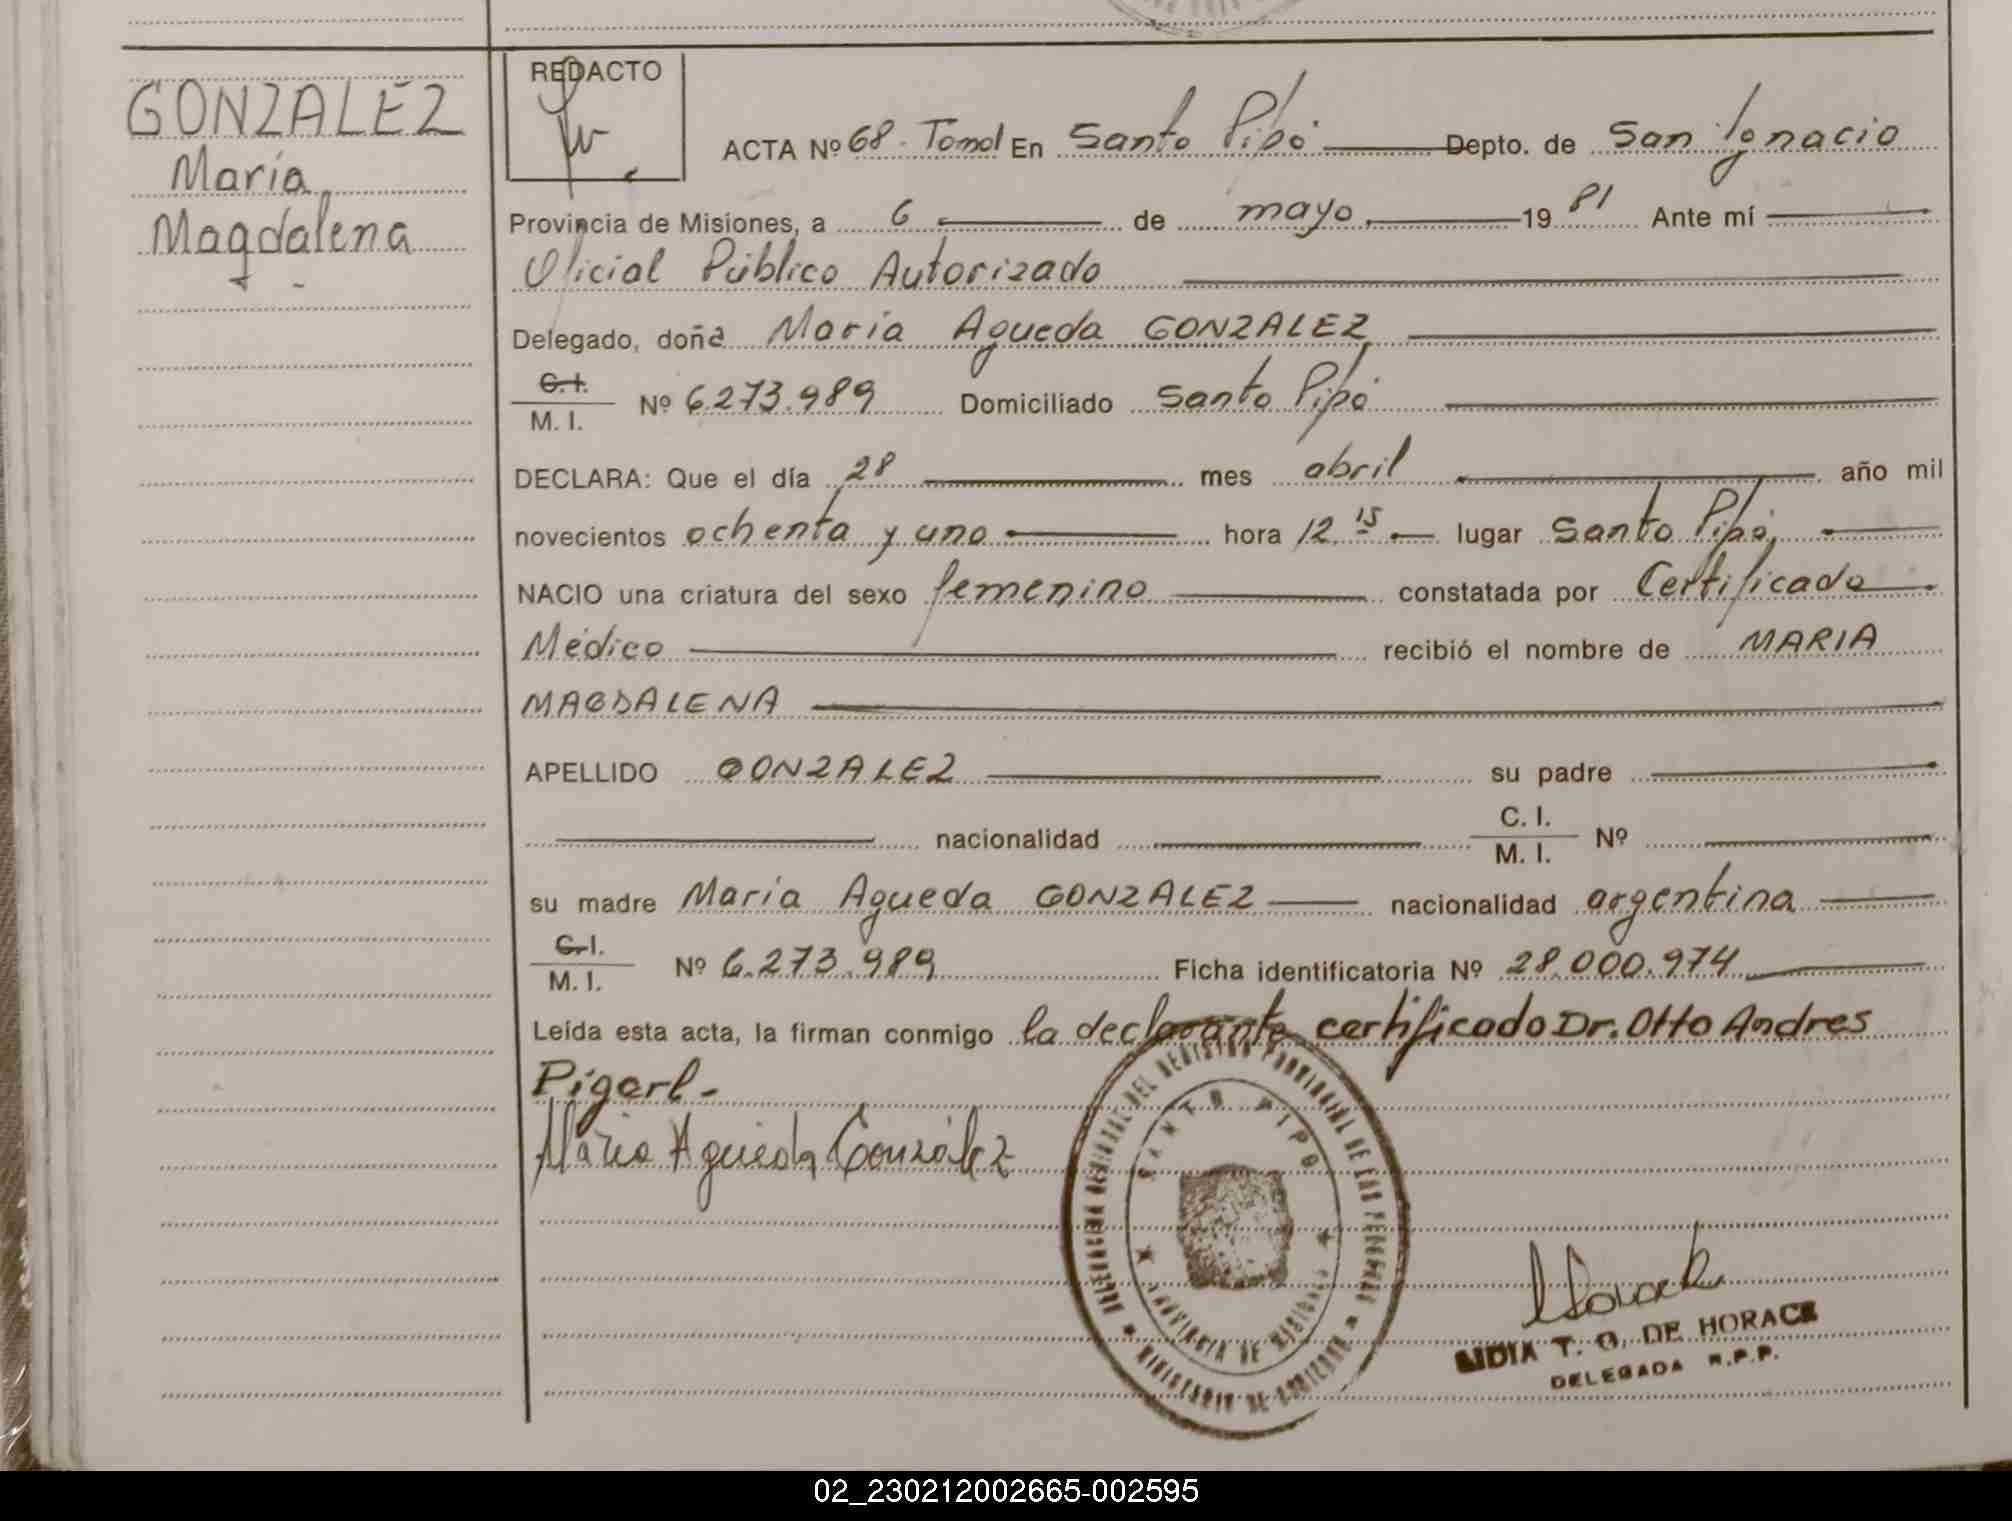 GONZALEZ
María
Magdalena
REDACTO
ACTA Nº 68. TomoI En Santo Pipó Depto. de San Ignacio
Provincia de Misiones, a 6 de mayo 19 81 Ante mí
Oficial Público Autorizado
Delegado, doña María Agueda GONZALEZ
C.I.
M. I. Nº 6.273.989 Domiciliado Santo Pipó
DECLARA: Que el día 28 mes abril año mil
novecientos ochenta y uno hora 12.15 lugar Santo Pipó,
NACIO una criatura del sexo femenino constatada por Certificado
Médico recibió el nombre de MARIA
MAGDALENA
APELLIDO GONZALEZ su padre
nacionalidad C. I.
M. I. Nº
su madre María Agueda GONZALEZ nacionalidad argentina
C.I.
M. I. Nº 6.273.989 Ficha identificatoria Nº 28.000.974
Leída esta acta, la firman conmigo la declarante certificado Dr. Otto Andres
Pigerl-
María Agueda González
SANTO PIPO
PROVINCIA DE MISIONES
REGISTRO PROVINCIAL DE LAS PERSONAS
MINISTERIO DE GOBIERNO
Horack
LIDIA T. O. DE HORACK
DELEGADA R.P.P.
02_230212002665-002595